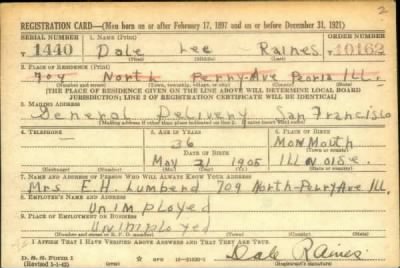 2
REGISTRATION CARD—(Men born on or after February 17, 1897 and on or before December 31, 1921)
SERIAL NUMBER 1. NAME (Print) ORDER NUMBER
V 1440 Dale Lee Raines V 10162
(First) (Middle) (Last)
2. PLACE OF RESIDENCE (Print)
704 North Perry Ave Peoria Ill.
(Number and street) (Town, township, village, or city) (County) (State)
[THE PLACE OF RESIDENCE GIVEN ON THE LINE ABOVE WILL DETERMINE LOCAL BOARD
JURISDICTION; LINE 2 OF REGISTRATION CERTIFICATE WILL BE IDENTICAL]
3. MAILING ADDRESS
General Delivery San Francisco
[Mailing address if other than place indicated on line 2. If same insert word same]
4. TELEPHONE 5. AGE IN YEARS 6. PLACE OF BIRTH
36 Monmouth
DATE OF BIRTH (Town or county)
May 31 1905 Illinoise.
(Exchange) (Number) (Mo.) (Day) (Yr.) (State or country)
7. NAME AND ADDRESS OF PERSON WHO WILL ALWAYS KNOW YOUR ADDRESS
Mrs E. H. Lumbend 709 North Perry Ave Ill.
8. EMPLOYER'S NAME AND ADDRESS
Unimployed
9. PLACE OF EMPLOYMENT OR BUSINESS
Unimployed
(Number and street or R. F. D. number) (Town) (County) (State)
I AFFIRM THAT I HAVE VERIFIED ABOVE ANSWERS AND THAT THEY ARE TRUE.
D. S. S. Form 1
(Revised 1-1-42) GPO 16-21630-1
Dale Raines